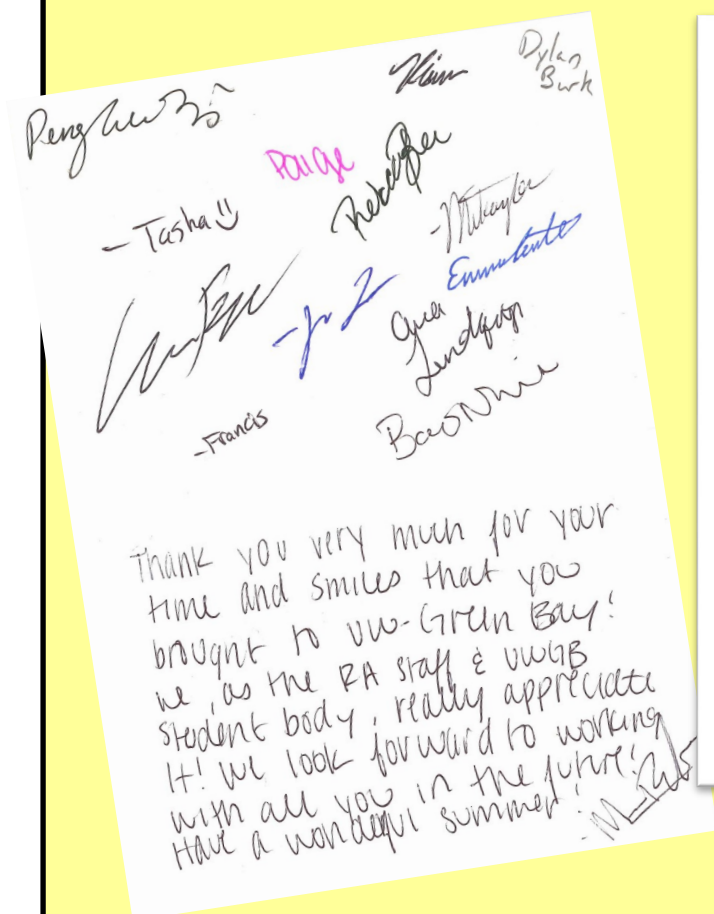 Dylan
Burk
Paige
- Tasha
- Mikayla
- Francis
Thank you very much for your
time and smiles that you
brought to UW-Green Bay!
We, as the RA staff & UWGB
student body, really appreciate
it! We look forward to working
with all you in the future!
Have a wonderful summer!